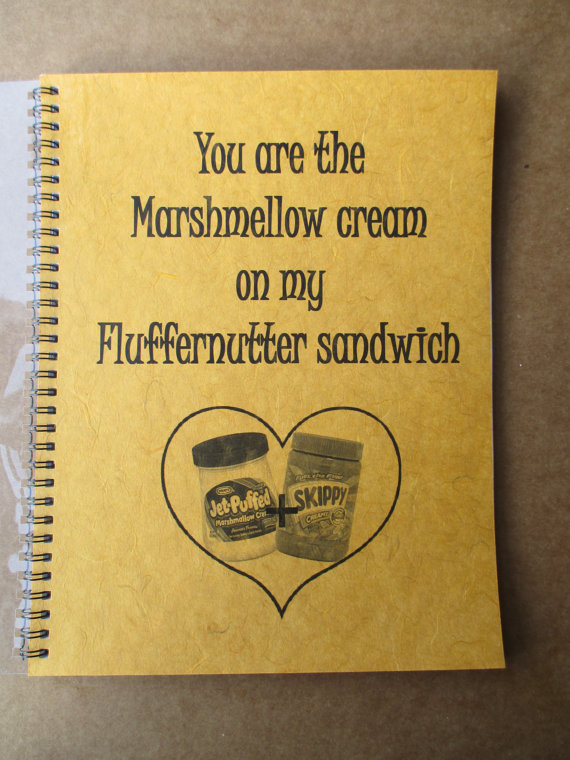 You are the
Marshmellow cream
on my
Fluffernutter sandwich
Jet-Puffed
Marshmallow Creme
+
SKIPPY
Creamy